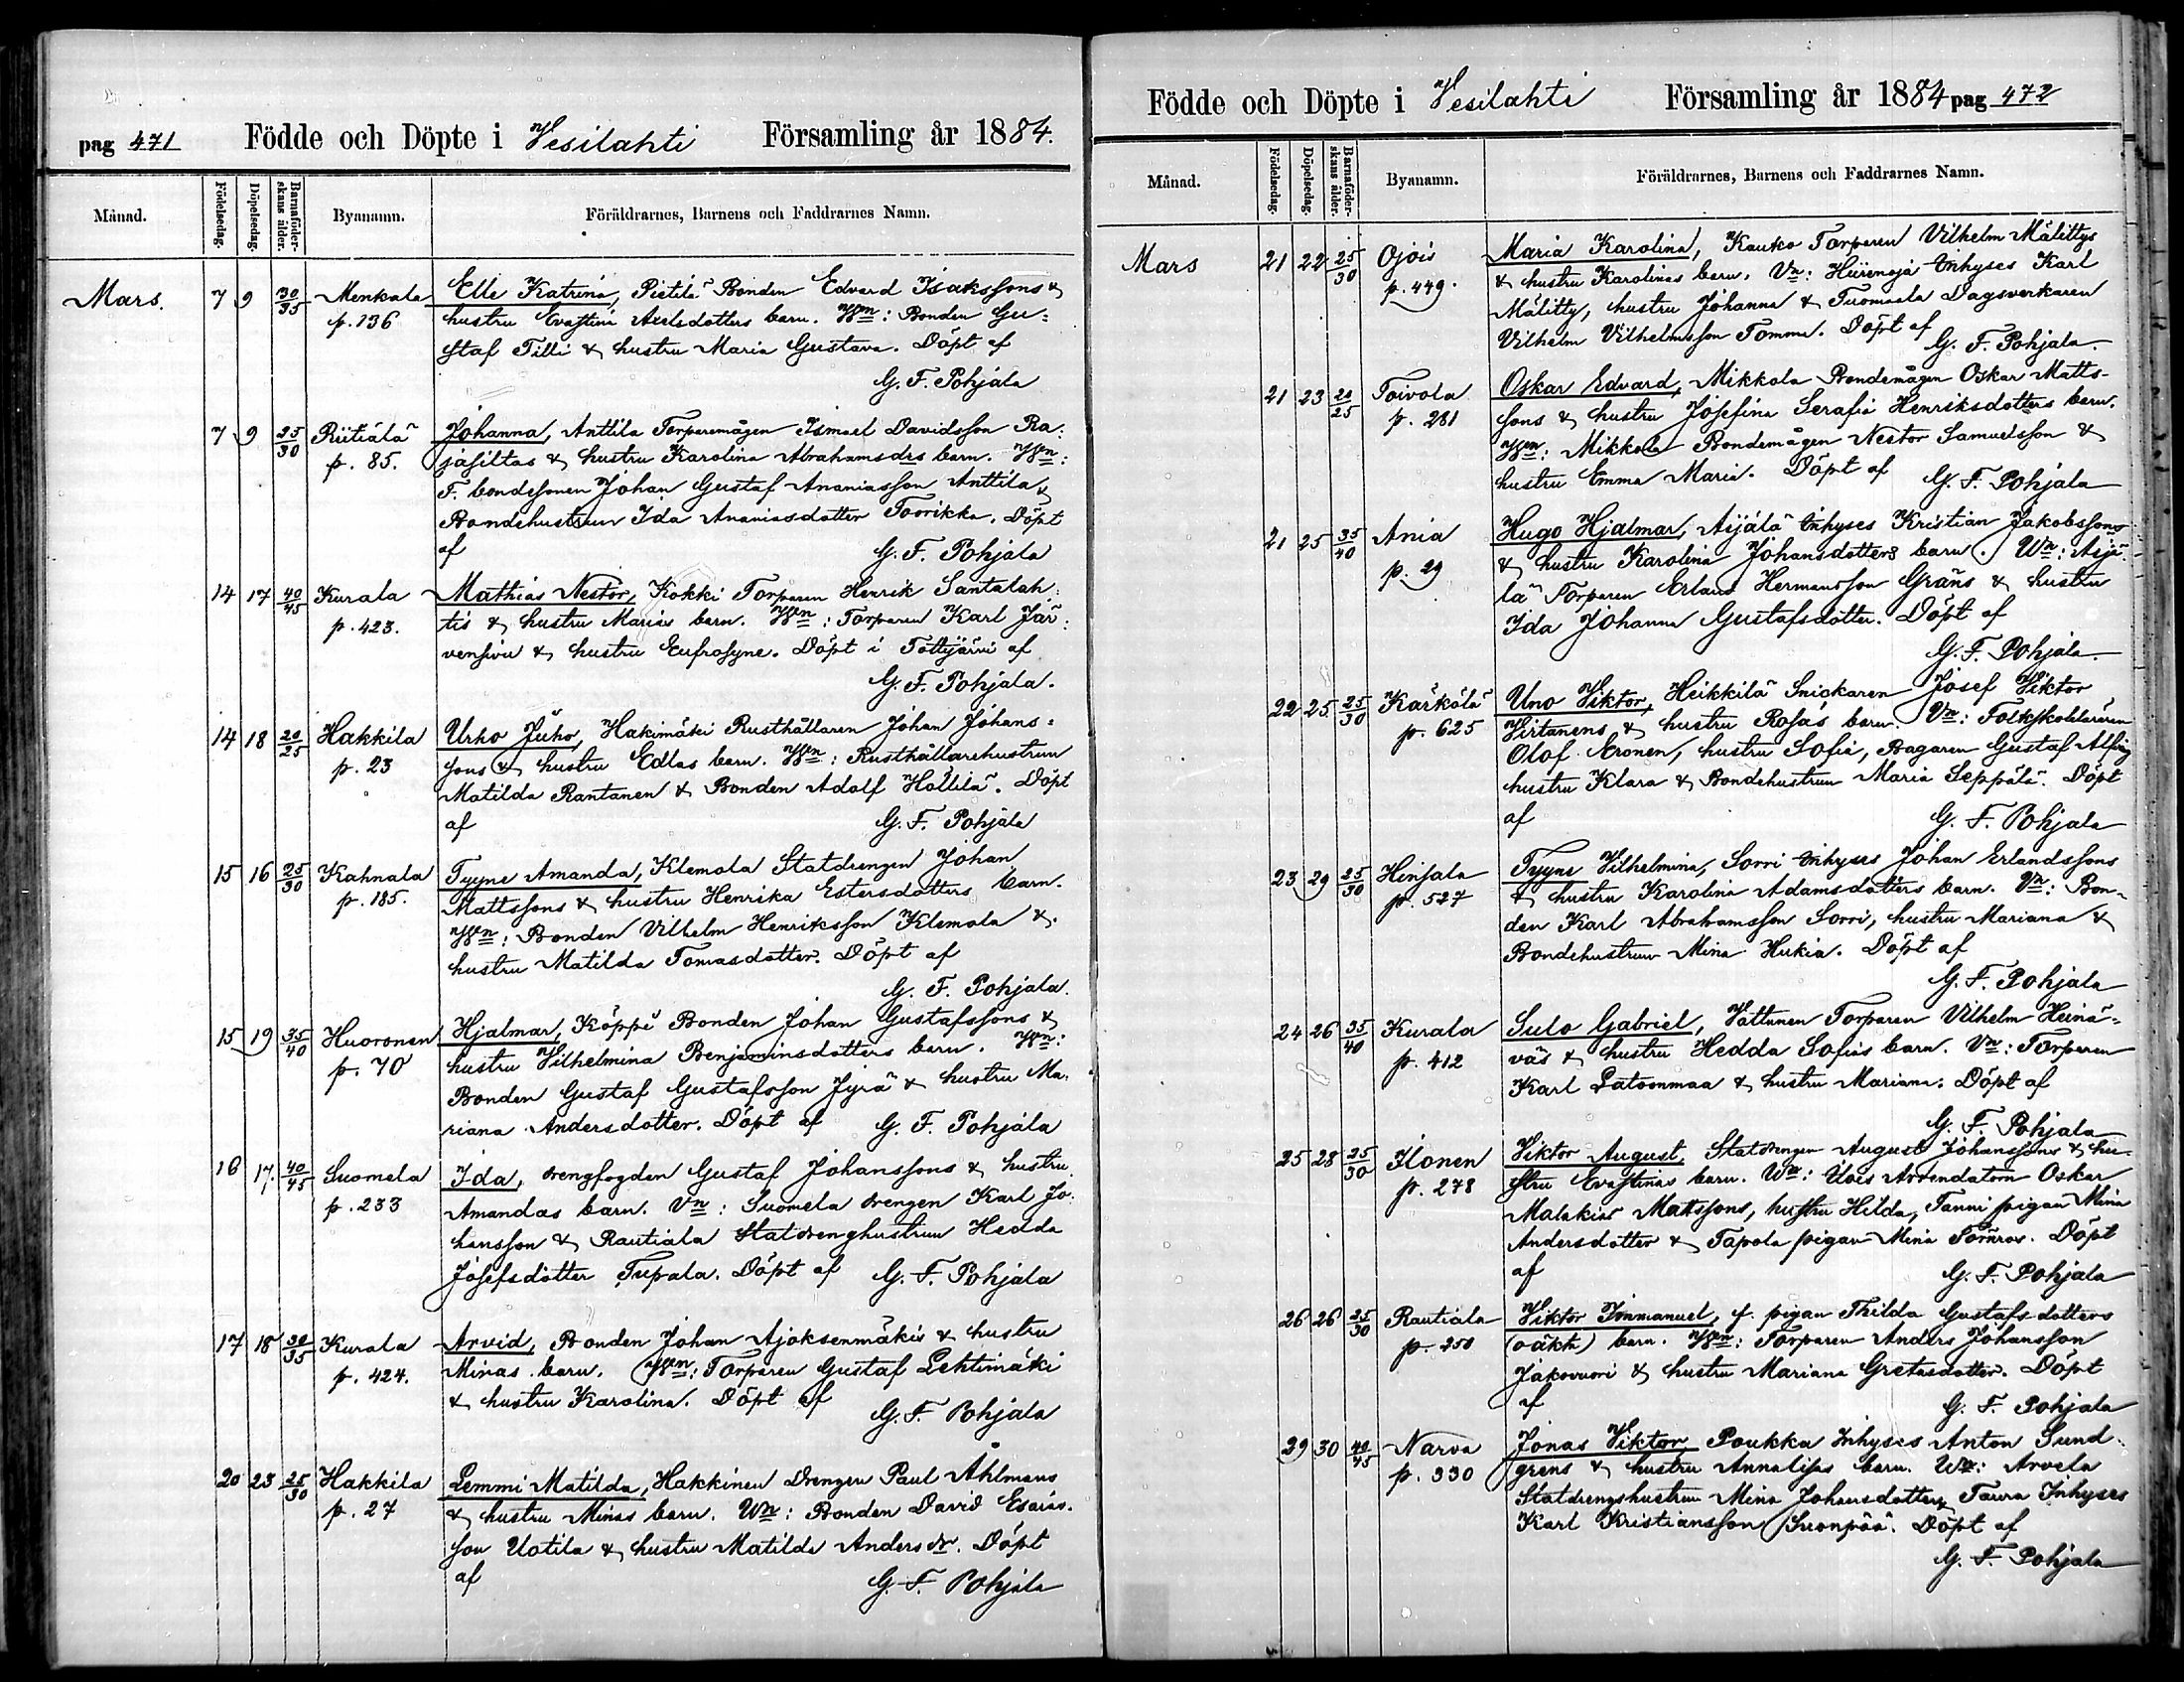 pag 471 Födde och Döpte i Vesilahti Församling år 1884.
Månad. Födelsedag. Döpelsedag. Barnaföder-skans ålder. Byanamn. Föräldrarnes, Barnens och Faddrarnes Namn.
Mars. 7 9 30/35 Menkala Elle Katrina, Pietilä Bonden Edvard Isakssons &
p. 136 hustru Evastina Axelsdotters barn. Wn: Bonden Gu-
staf Tilli & hustru Maria Gustava. Döpt af
G. F. Pohjala
7 9 25/30 Riitiälä Johanna, Anttila Torparemågen Ismael Davidsson Ra-
p. 85. jasiltas & hustru Karolina Abrahamsdrs barn. Wn:
F. bondesonen Johan Gustaf Ananiasson Anttila &
Bondehustrun Ida Ananiasdotter Toorikka. Döpt
af G. F. Pohjala
14 17 40/45 Kurala Mathias Nestor, Kokki Torparen Henrik Santalah-
p. 423. tis & hustru Marias barn. Wn: Torparen Karl Jär-
vensivu & hustru Eufrosyne. Döpt i Tottijärvi af
G. F. Pohjala.
14 18 20/25 Hakkila Urho Juho, Hakimäki Rusthållaren Johan Johans-
p. 23 sons & hustru Edlas barn. Wn: Rusthållarehustrun
Matilda Rantanen & Bonden Adolf Hällilä. Döpt
af G. F. Pohjala
15 16 25/30 Kahnala Tyyne Amanda, Klemola Statdrengen Johan
p. 185. Mattssons & hustru Henrika Estersdotters barn.
Wn: Bonden Vilhelm Henriksson Klemola &
hustru Matilda Tomasdotter. Döpt af
G. F. Pohjala.
15 19 35/40 Huoronen Hjalmar, Köppi Bonden Johan Gustafssons &
p. 70 hustru Vilhelmina Benjaminsdotters barn. Wn:
Bonden Gustaf Gustafsson Jyrä & hustru Ma-
riana Andersdotter. Döpt af G. F. Pohjala
16 17. 40/45 Suomela Ida, drengfogden Gustaf Johanssons & hustru
p. 233 Amandas barn. Vn: Suomela drengen Karl Jo-
hansson & Rautiala Statdrenghustrun Hedda
Josefsdotter Tupala. Döpt af G. F. Pohjala
17 18 30/35 Kurala Arvid, Bonden Johan Ajoksenmäkis & hustru
p. 424. Minas barn. Wn: Torparen Gustaf Lehtimäki
& hustru Karolina. Döpt af
G. F. Pohjala
20 23 25/30 Hakkila Lemmi Matilda, Hakkinen Drengen Paul Åhlmans
p. 27 & hustru Minas barn. Wn: Bonden David Esaias-
son Uotila & hustru Matilda Andersdr. Döpt
af G. F. Pohjala
Födde och Döpte i Vesilahti Församling år 1884 pag 472
Månad. Födelsedag. Döpelsedag. Barnaföder-skans ålder. Byanamn. Föräldrarnes, Barnens och Faddrarnes Namn.
Mars 21 22 25/30 Ojois Maria Karolina, Kauko Torparen Vilhelm Mälittys
p. 449. & hustru Karolinas barn. Vn: Inhyses Karl
Mälitty, hustru Johanna & Tuomaala Dagsverkaren
Vilhelm Vilhelmsson Tomma. Döpt af
G. F. Pohjala.
21 23 20/25 Toivola Oskar Edvard, Mikkola Bondemågen Oskar Matts-
p. 281 sons & hustru Josefina Serafia Henriksdotters barn.
Wn: Mikkola Bondemågen Nestor Samuelsson &
hustru Emma Maria. Döpt af G. F. Pohjala
21 25 35/40 Ania Hugo Hjalmar, Äijälä Inhyses Kristian Jakobssons
p. 29 & hustru Karolina Johansdotters barn. Wn: Äijä-
lä Torparen Erland Hermansson Gräns & hustru
Ida Johanna Gustafsdotter. Döpt af
G. F. Pohjala.
22 25 25/30 Kärkölä Uno Viktor, Heikkilä Snickaren Josef Viktor
p. 625 Virtanens & hustru Rosas barn. Vn: Folkskoleläraren
Olof Eronen, hustru Sofia, Bagaren Gustaf Alfing
hustru Klara & Bondehustrun Maria Seppälä. Döpt
af G. F. Pohjala
23 29 25/30 Hinsala Tyyne Vilhelmina, Sorri Inhyses Johan Erlandssons
p. 527 & hustru Karolina Adamsdotters barn. Vn: Bon-
den Karl Abrahamsson Sorri, hustru Mariana &
Bondehustrun Mina Hukia. Döpt af
G. F. Pohjala
24 26 35/40 Kurala Sulo Gabriel, Vattunen Torparen Vilhelm Heinä-
p. 412 väs & hustru Hedda Sofias barn. Vn: Torparen
Karl Latoonmaa & hustru Mariana. Döpt af
G. F. Pohjala
25 28 25/30 Ilonen Viktor August, Statdrengen August Johanssons & hu-
p. 278 stru Evastinas barn. Wn: Arrendatorn Oskar
Malakias Matssons, hustru Hilda, Tanni pigan Mina
Andersdotter & Tapola pigan Mina Törnroos. Döpt
af G. F. Pohjala
26 26 25/30 Rautiala Viktor Immanuel, f. pigan Thilda Gustafsdotters
p. 250 (oäkta) barn. Wn: Torparen Anders Johansson
Jakovuori & hustru Mariana Gretasdotter. Döpt
af G. F. Pohjala
29 30 40/45 Narva Jonas Viktor, Poukka Inhyses Anton Sund-
p. 330 grens & hustru Annalisas barn. Wn: Arvela
Statdrengshustrun Mina Johansdotter & Taura Inhyses
Karl Kristiansson Suonpää. Döpt af
G. F. Pohjala